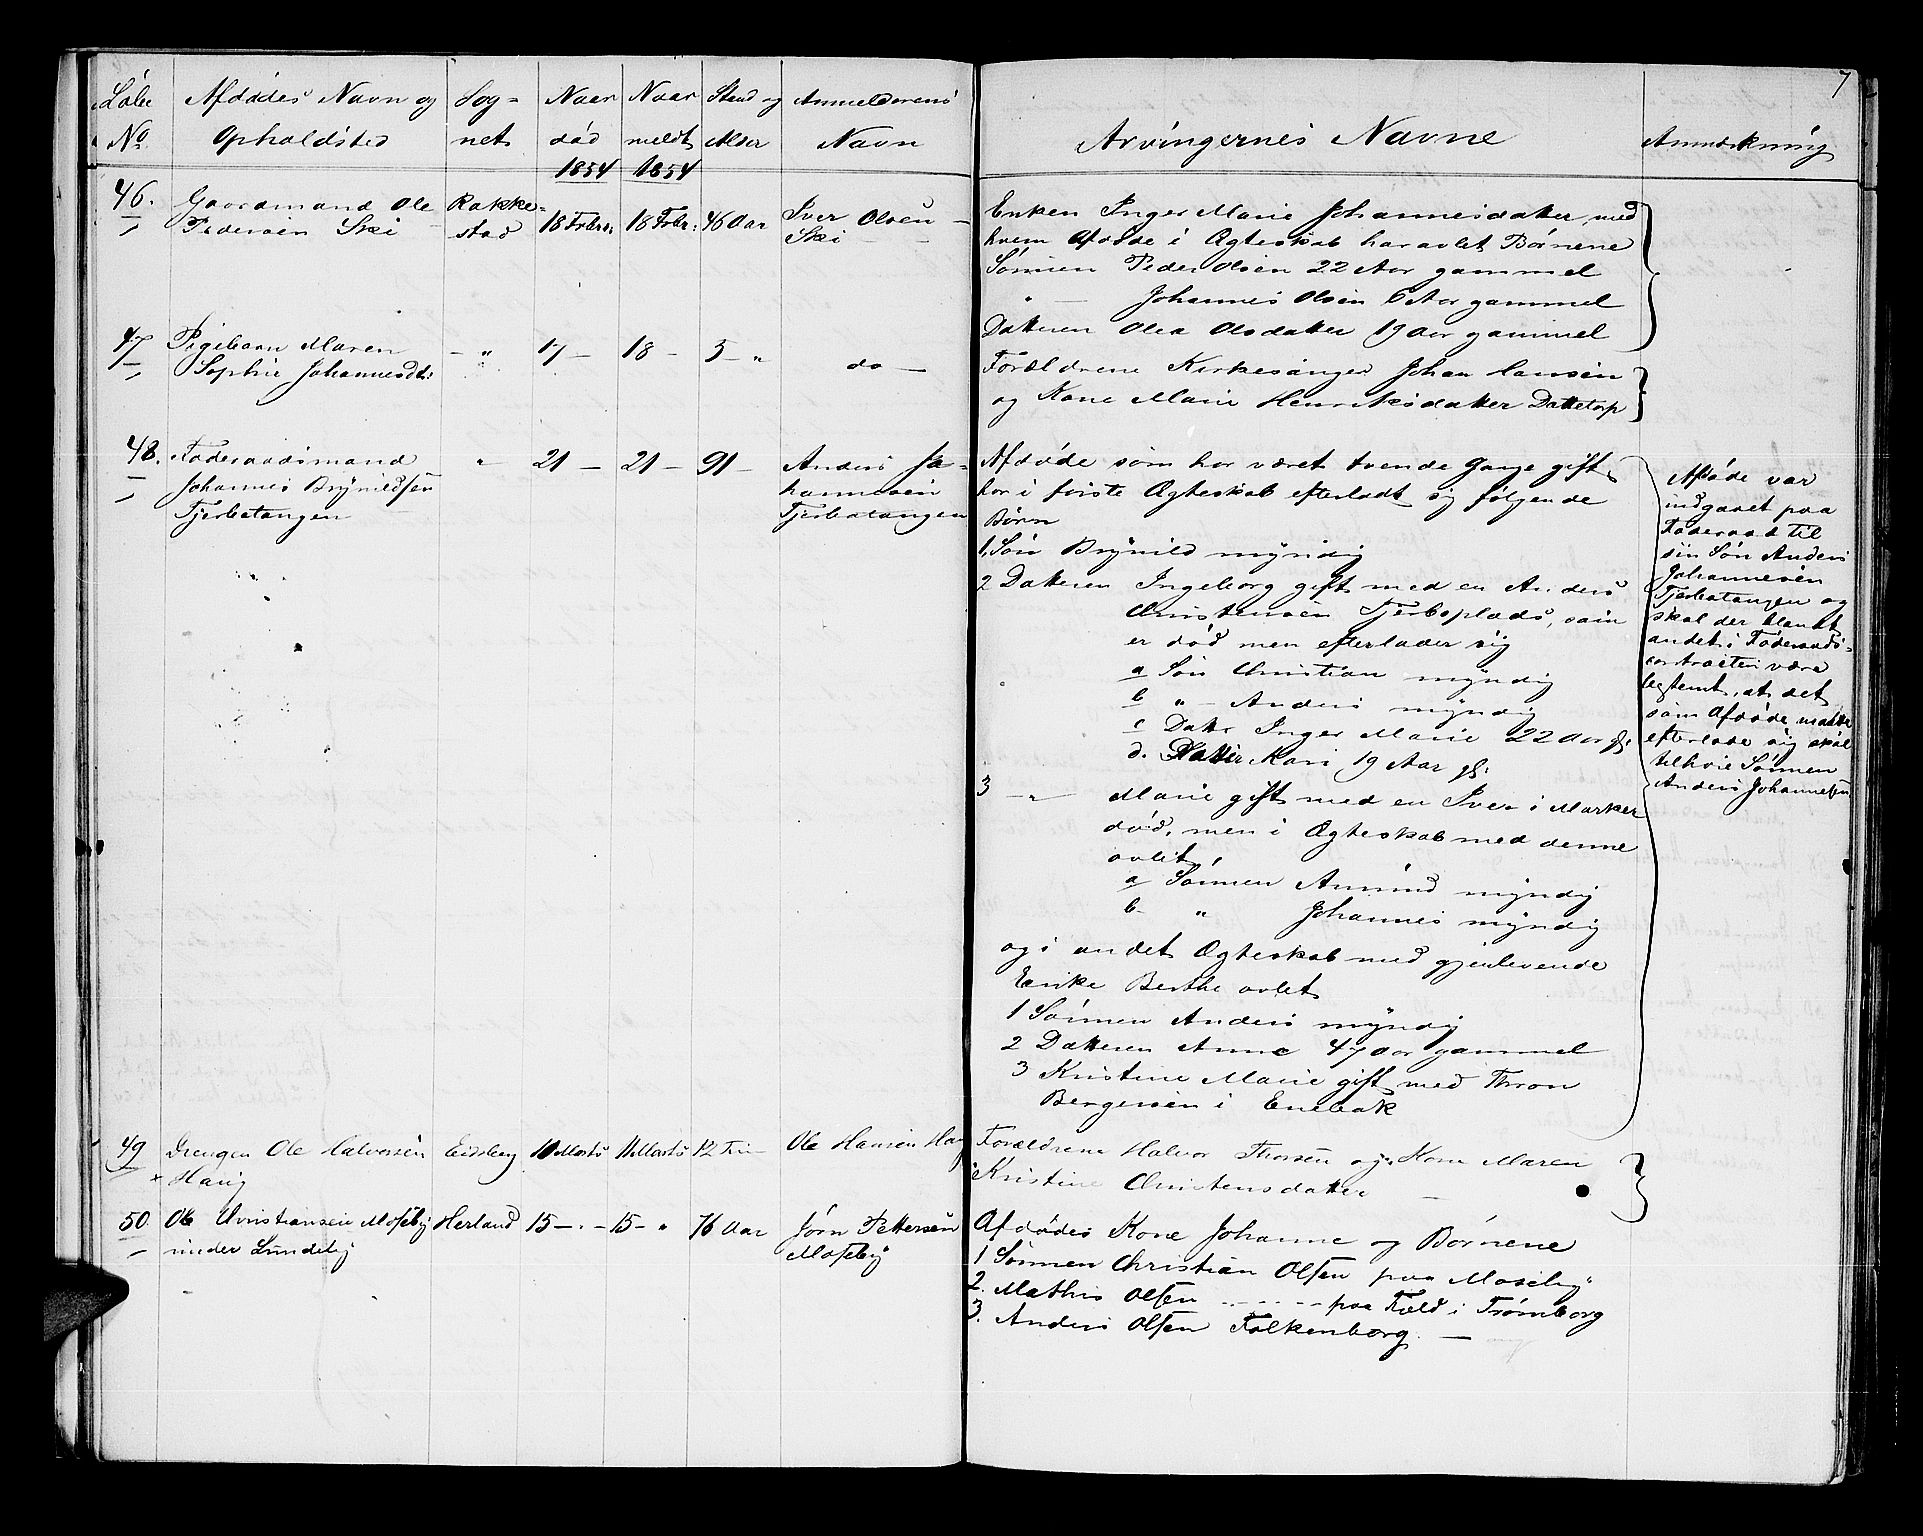 7
Løbe Afdødes Navn og Sog- Naar Naar Stand og Anmelderens
No Opholdsted net død meldt Alder Navn Arvingernes Navne Anmærkning
1854 1854
46. Gaardmand Ole Rakke- 18 Febr: 18 Febr: 46 Aar Iver Olsen
Pedersen Ski stad Ski
Enken Inger Marie Johannesdatter, med
hvem Afdøde i Ægteskab har avlet Børnene
Sønnen Peder Olsen 22 Aar gammel
" — Johannes Olsen 6 Aar gammel
Datteren Olea Olsdatter 19 Aar gammel
47 Pigebarn Maren - " 17 - 18 - 5 - " do -
Sophie Johannesdtr:
Forældrene Kirkesanger Johan Hansen
og Kone Marie Henriksdatter Dattetorp
48. Føderaadsmand " 21 - 21 - 91 - Anders Jo-
Johannes Brynildsen hannesen
Tjerbatangen Tjerbatangen
Afdøde som har været tvende Gange gift
har i første Ægteskab efterladt sig følgende
Børn
1. Søn Brynild myndig
2 Datteren Ingeborg gift med en Anders
Christensen Tjerboplads, som
er død men efterlader sig
a Søn Christian myndig
b " - Anders myndig
c Dattr Inger Marie 22 Aar gl:
d. Datter Kari 19 Aar gl:
3 - " Marie gift med en Iver i Marker
død, men i Ægteskab med denne
avlet
a Sønnen Amund myndig
b- " Johannes myndig
og i andet Ægteskab med gjenlevende
Enke Berthe avlet
1 Sønnen Anders myndig
2 Datteren Anne 47 Aar gammel
3 Kristine Marie gift med Thron
Bergersen i Enebak
Afdøde var
indgaaet paa
Føderaad til
sin Søn Anders
Johannesen
Tjerbatangen og
skal der blandt
andet i Føderaads-
contracten være
bestemt, at det
som Afdøde maatte
efterlade sig skal
tilhøre Sønnen
Anders Johannesen
49 Drengen Ole Halvorsen Eidsberg 10 Marts 11 Marts 12 Ole Hansen Haug
x Haug
Forældrene Halvor Thorsen og Kone Maren
Kristine Christensdatter —
50. Ole Christiansen Moseby Herland 15 - " - 15 - " 76 Aar Jørn Pettersen
under Lundeby Moseby
Afdødes Kone Johanne og Børnene
1 Sønnen Christian Olsen paa Moseby
2. Mathis Olsen - - - - paa Fjeld i Trømborg
3. Anders Olsen Falkenborg. —